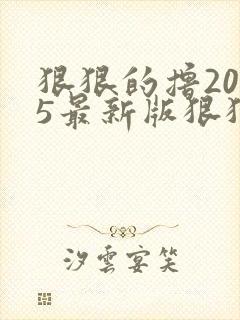 狠狠的撸20
5最新版狠狠
汐雲宴笑